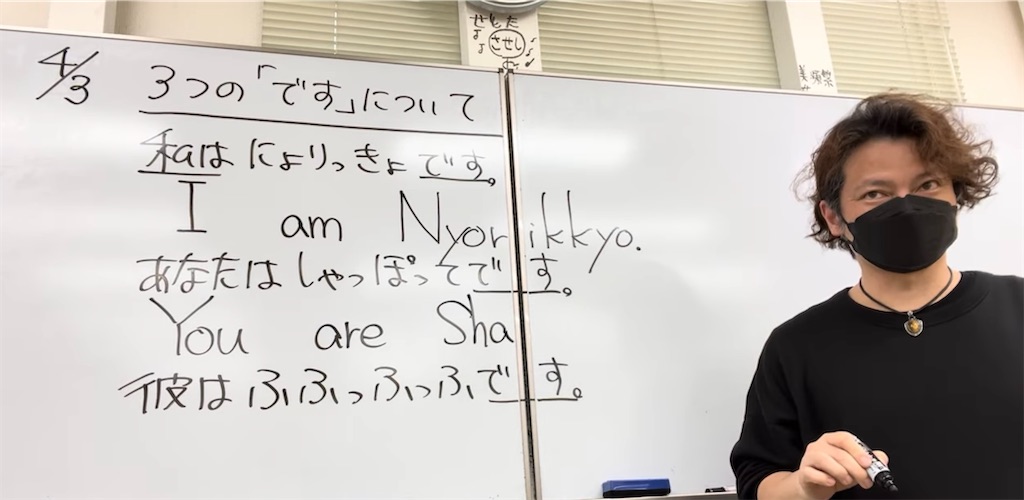 4/3
3つの「です」について
私はにょりっきょです。
I am Nyorikkyo.
あなたはしゃっぽってです。
You are Sha
彼はふふっふっふです。
させし